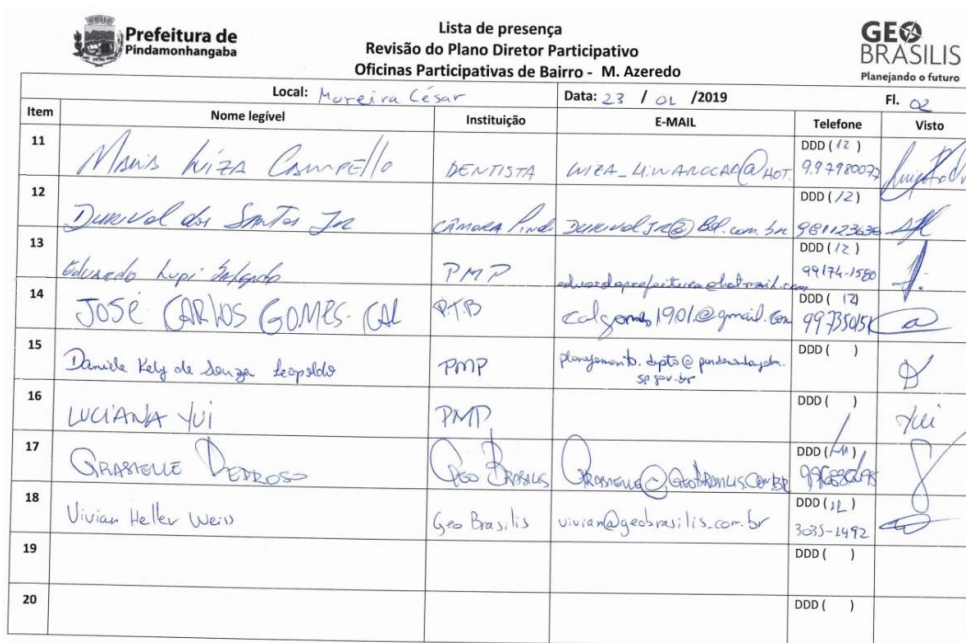 Prefeitura de
Pindamonhangaba
Lista de presença
Revisão do Plano Diretor Participativo
Oficinas Participativas de Bairro - M. Azeredo
GEO
BRASILIS
Planejando o futuro
Local: Moreira César Data: 23 / 01 /2019 Fl. 02
Item Nome legível Instituição E-MAIL Telefone Visto
11 Maria Luiza Campello DENTISTA DDD (12) 997980077
12 Durival dos Santos Jr CÂMARA Pinda DDD (12) 981123636
13 Eduardo Lupi Salgado PMP eduardoprefeitura@hotmail.com DDD (12) 99174-1580
14 JOSÉ CARLOS GOMES-CAL PTB calgomes1901@gmail.com DDD (12) 99735015
15 Daniele Kely de Souza Leopoldo PMP planejamento.depto@ sp.gov.br DDD ( )
16 LUCIANA YUI PMP DDD ( ) Yui
17 GRASIELLE PEDROSO GEO BRASILIS GRASIELLE@GEOBRASILIS.COM.BR DDD (11)
18 Vivian Heller Weiss Geo Brasilis vivian@geobrasilis.com.br DDD (11) 3035-1492
19 DDD ( )
20 DDD ( )